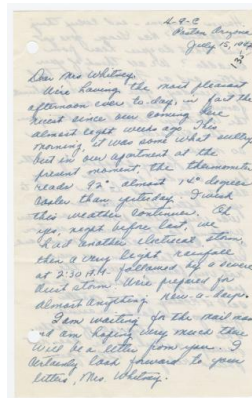 4-9-C
Poston, Arizona
July 15, 1942
Dear Mrs Whitney,
We're having the most pleasant
afternoon ever to-day, in fact the
nicest since our coming here
almost eight weeks ago. This
morning, it was some what sultry
but in our apartment at the
present moment, the thermometer
reads 92° almost 14° degrees
cooler than yesterday. I wish
this weather continues. Oh
yes, night before last, we
had another electrical storm,
then a very light rainfall
at 2:30 A.M. followed by a severe
dust storm. We're prepared for
almost anything now-a-days.
I am waiting for the mail now
and am hoping very much there
will be a letter from you. I
certainly look forward to your
letters, Mrs. Whitney.